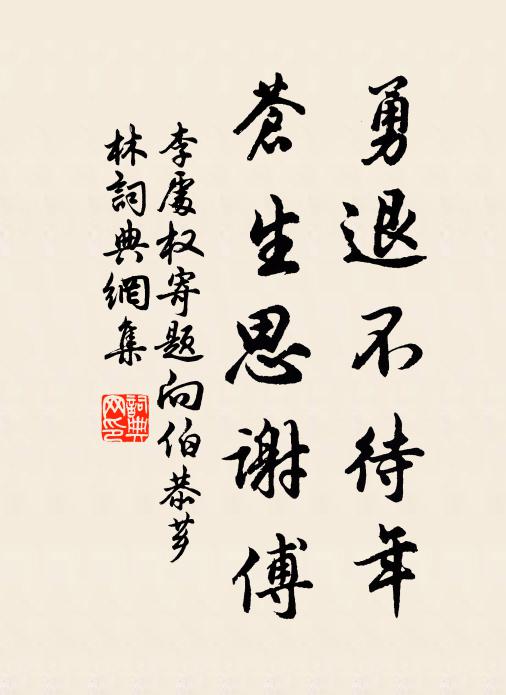 勇退不待年
蒼生思謝傅
李處权寄題向伯恭芗
林詞典網集
詞典
网印